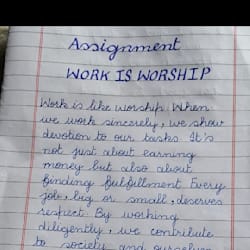 Assignment
WORK IS WORSHIP
Work is like worship. When
we work sincerely, we show
devotion to our tasks. It's
not just about earning
money but also about
finding fulfillment. Every
job, big or small, deserves
respect. By working
diligently, we contribute
to society and ourselves